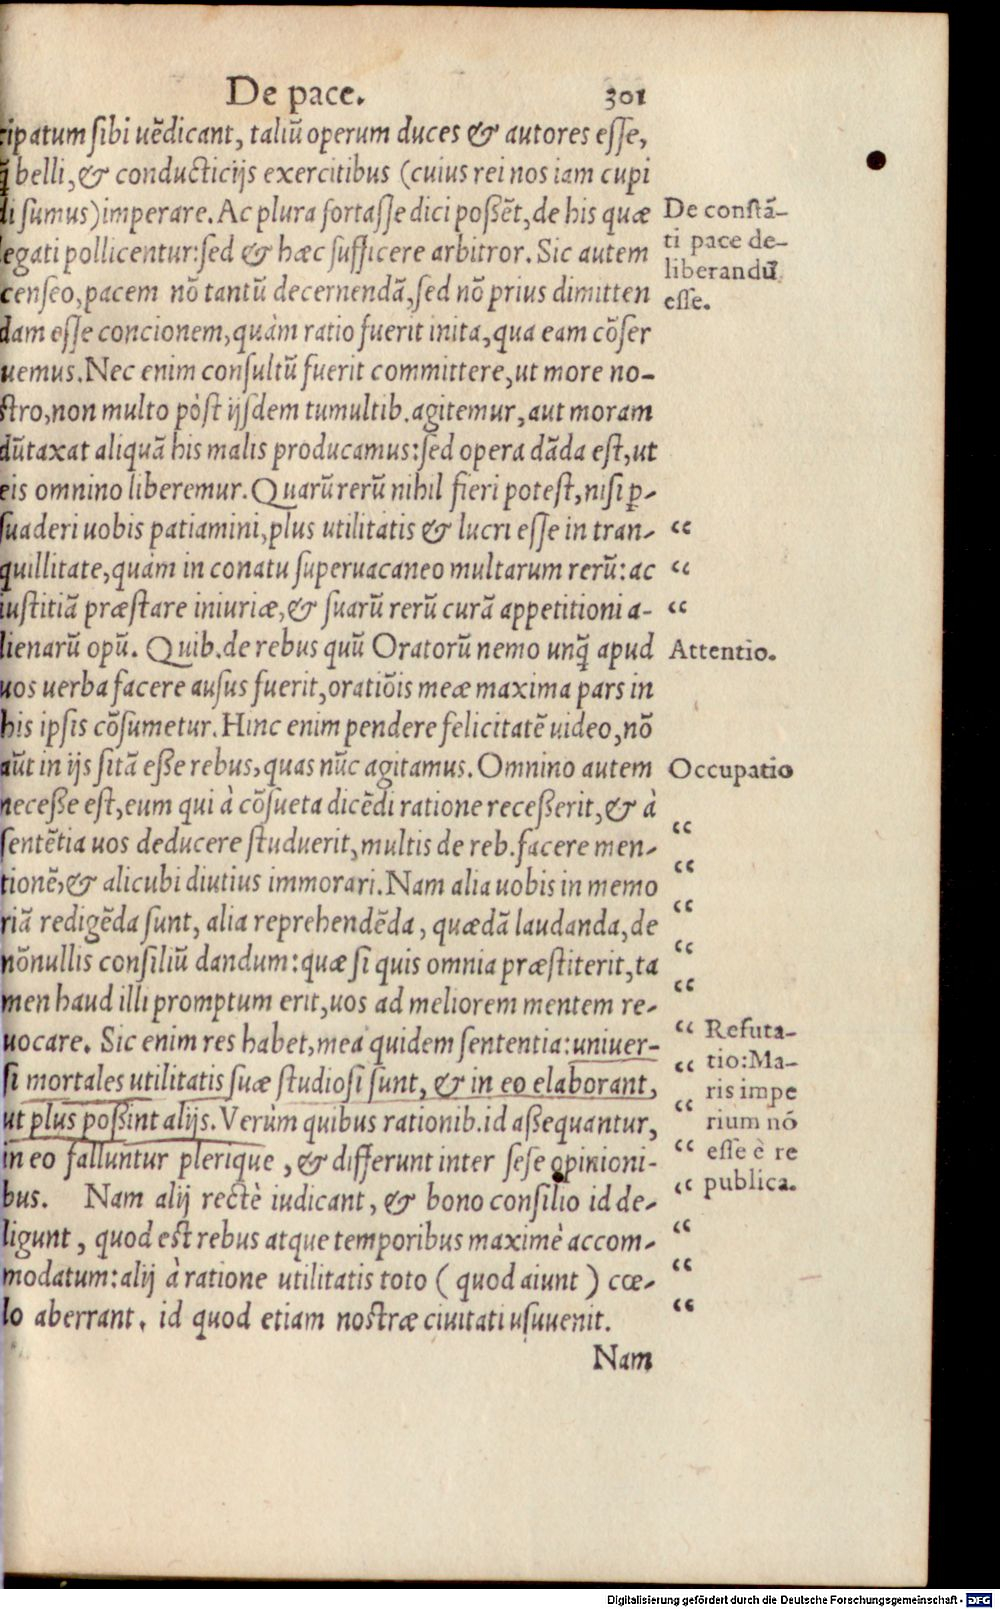 De pace. 301
cipatum sibi uẽdicant, taliũ operum duces & autores esse,
q̃ belli, & conducticijs exercitibus (cuius rei nos iam cupi
di sumus) imperare. Ac plura fortasse dici possẽt, de his quæ
legati pollicentur: sed & hæc sufficere arbitror. Sic autem
censeo, pacem nõ tantũ decernendã, sed nõ prius dimitten
dam esse concionem, quàm ratio fuerit inita, qua eam cõser
uemus. Nec enim consultũ fuerit committere, ut more no-
stro, non multo pòst ijsdem tumultib. agitemur, aut moram
dũtaxat aliquã his malis producamus: sed opera dãda est, ut
eis omnino liberemur. Quarũ rerũ nihil fieri potest, nisi ꝑ-
suaderi uobis patiamini, plus utilitatis & lucri esse in tran-
quillitate, quàm in conatu superuacaneo multarum rerũ: ac
iustitiã præstare iniuriæ, & suarũ rerũ curã appetitioni a-
lienarũ opũ. Quib. de rebus quũ Oratorũ nemo unq̃ apud
uos uerba facere ausus fuerit, oratiõis meæ maxima pars in
his ipsis cõsumetur. Hinc enim pendere felicitatẽ uideo, nõ
aũt in ijs sitã esse rebus, quas nũc agitamus. Omnino autem
necesse est, eum qui à cõsueta dicẽdi ratione recesserit, & à
sentẽtia uos deducere studuerit, multis de reb. facere men-
tionẽ, & alicubi diutius immorari. Nam alia uobis in memo
riã redigẽda sunt, alia reprehendẽda, quædã laudanda, de
nõnullis consiliũ dandum: quæ si quis omnia præstiterit, ta
men haud illi promptum erit, uos ad meliorem mentem re-
uocare. Sic enim res habet, mea quidem sententia: uniuer-
si mortales utilitatis suæ studiosi sunt, & in eo elaborant,
ut plus possint alijs. Verùm quibus rationib. id assequantur,
in eo falluntur plerique, & differunt inter sese opinioni-
bus. Nam alij rectè iudicant, & bono consilio id de-
ligunt, quod est rebus atque temporibus maximè accom-
modatum: alij à ratione utilitatis toto (quod aiunt) cœ-
lo aberrant. id quod etiam nostræ ciuitati usuuenit.
Nam
De constã-
ti pace de-
liberandũ
esse.
“
“
“
Attentio.
Occupatio
“
“
“
“
“
“ Refuta-
“ tio: Ma-
ris impe
“ rium nõ
“ esse è re
“ publica.
“
“
“
Digitalisierung gefördert durch die Deutsche Forschungsgemeinschaft - DFG